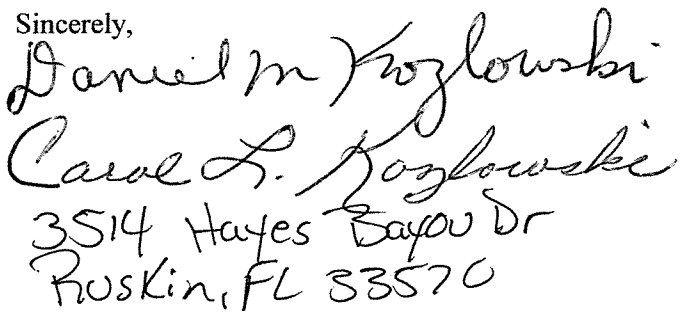 Sincerely,
Daniel M Kozlowski
Carol L. Kozlowski
3514 Hayes Bayou Dr
Ruskin, FL 33570